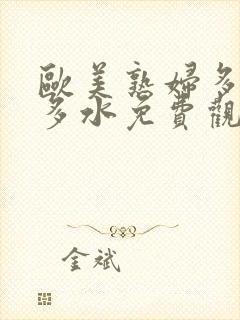 歐美熟婦多
多水免費觀
金斌